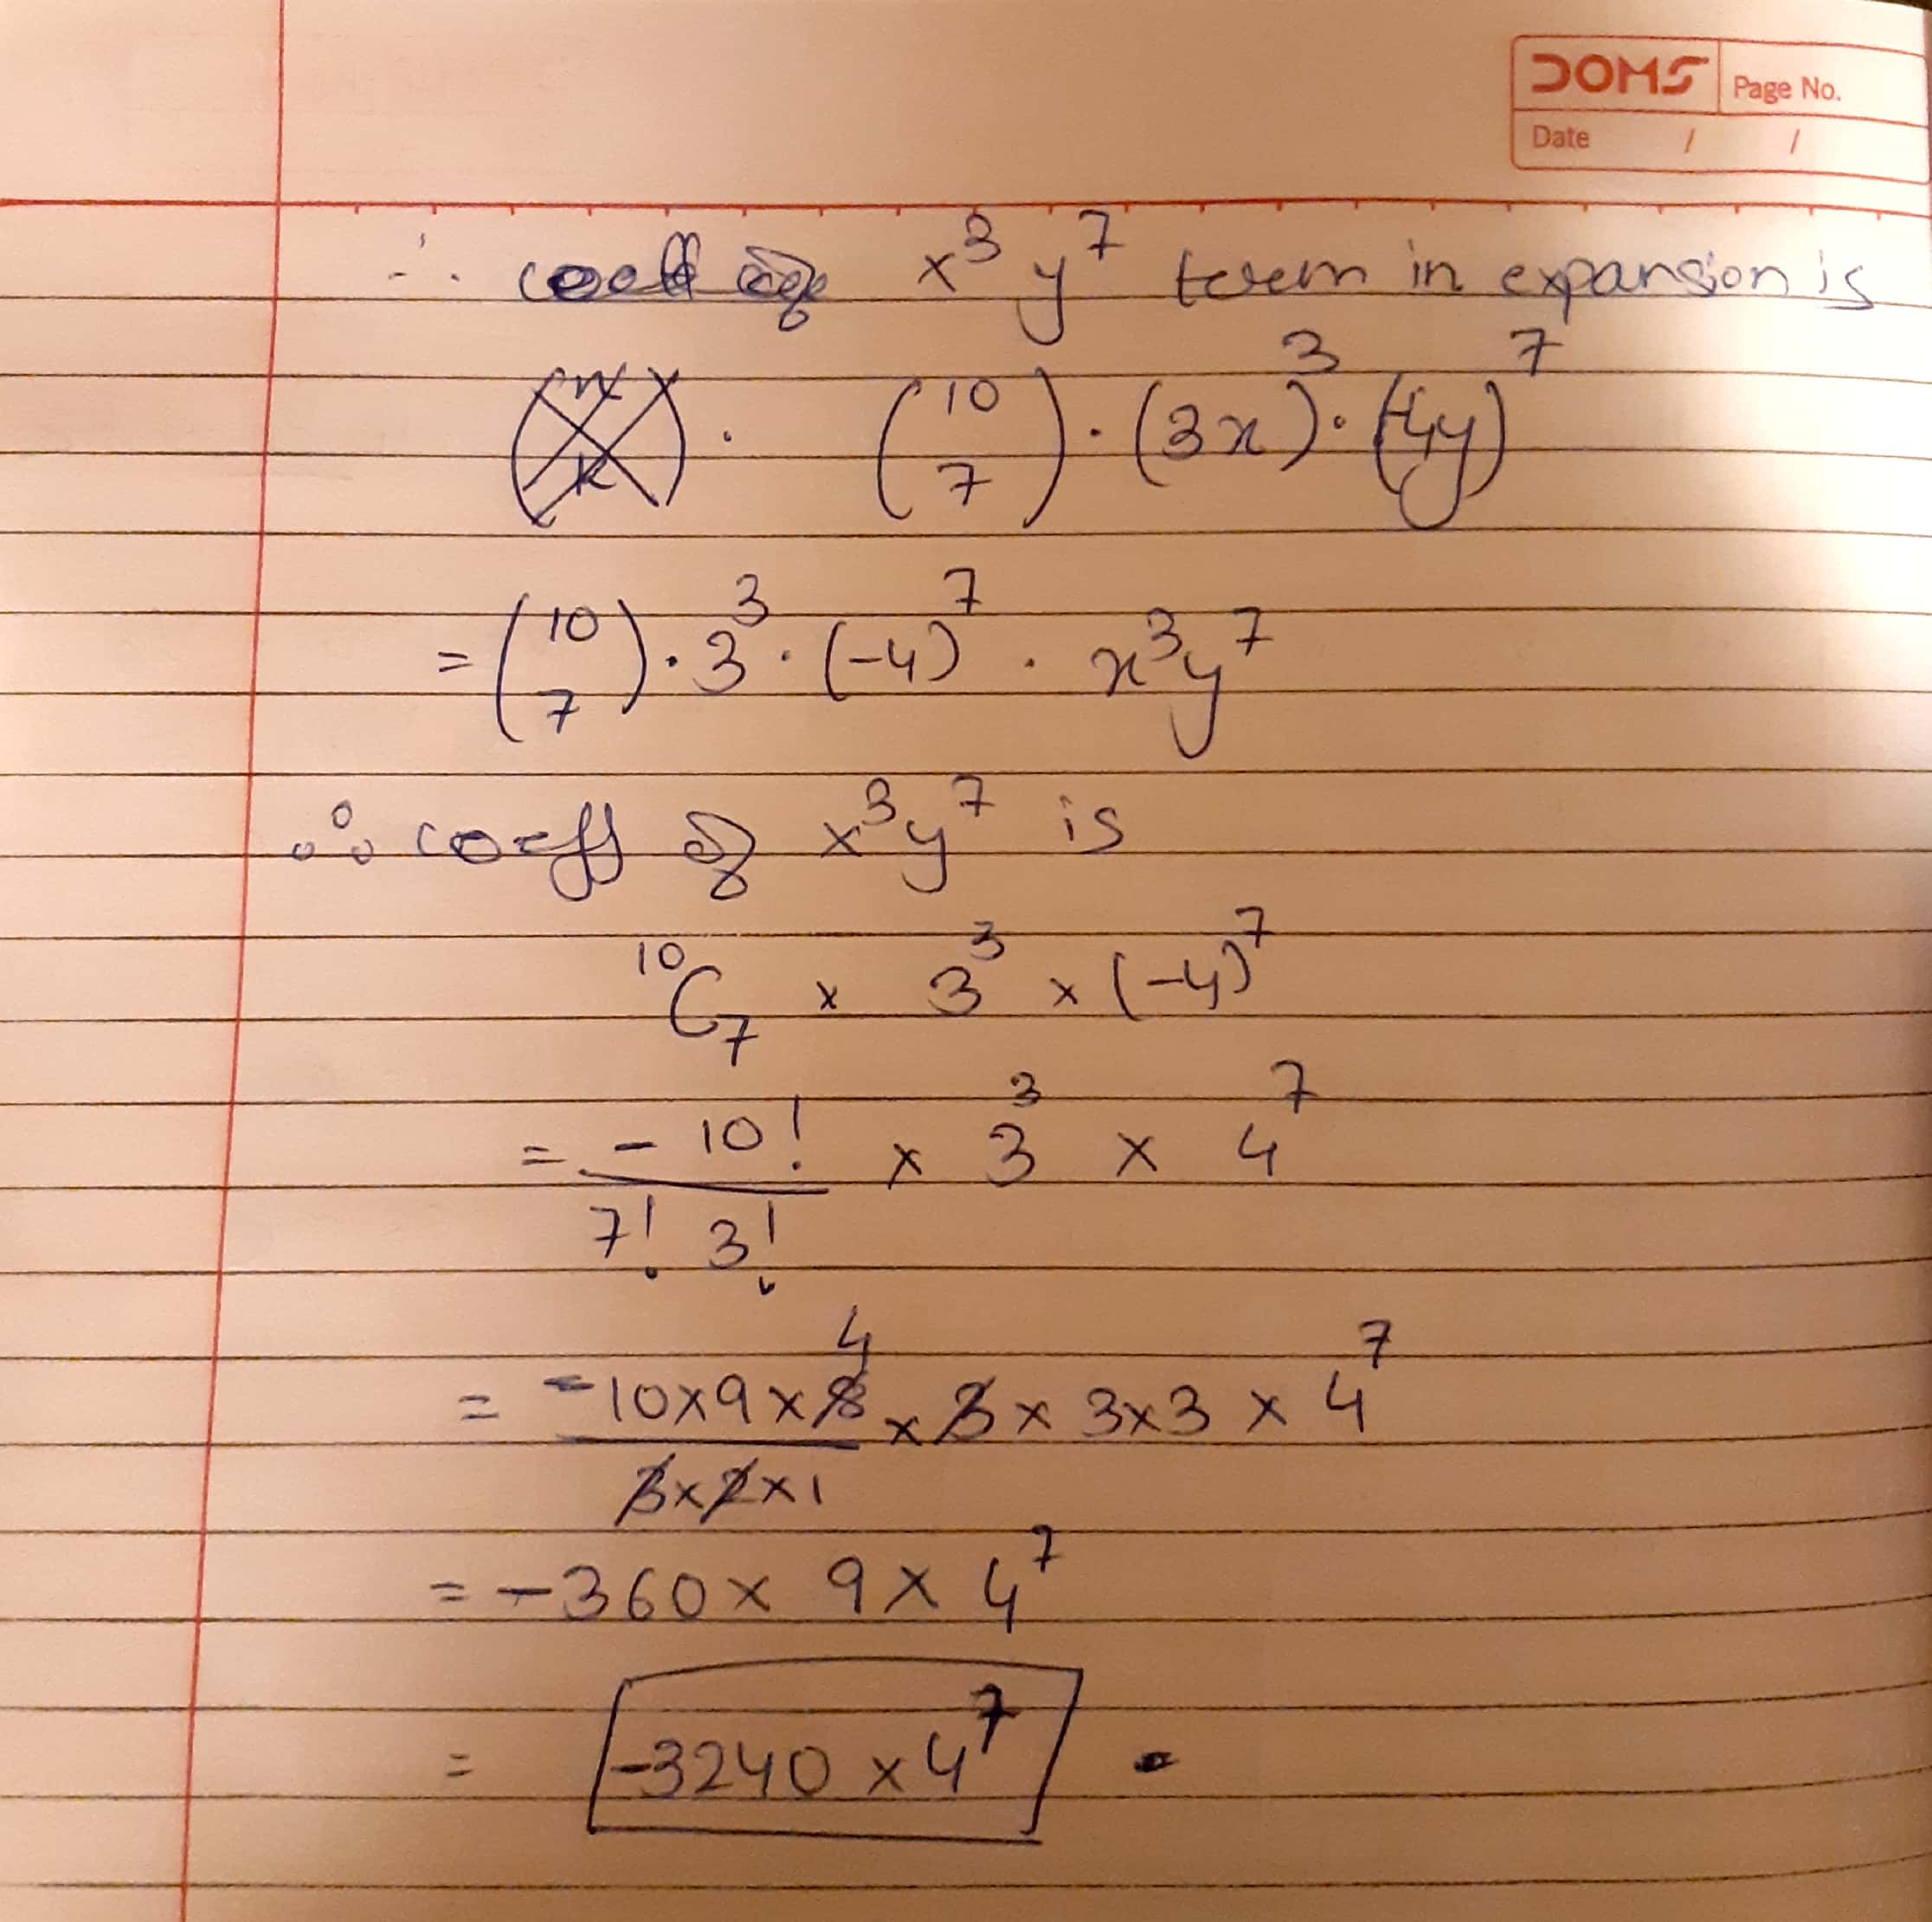 DOMS Page No.
Date / /
∴ x³ y⁷ term in expansion is
(10 7) · (3x)³ · (-4y)⁷
= (10 7) · 3³ · (-4)⁷ · x³y⁷
∴ coeff of x³y⁷ is
¹⁰C₇ × 3³ × (-4)⁷
= - 10! / 7! 3! × 3³ × 4⁷
= -10×9×8 4 / 3×2×1 × 3 × 3×3 × 4⁷
= -360 × 9 × 4⁷
= -3240 × 4⁷